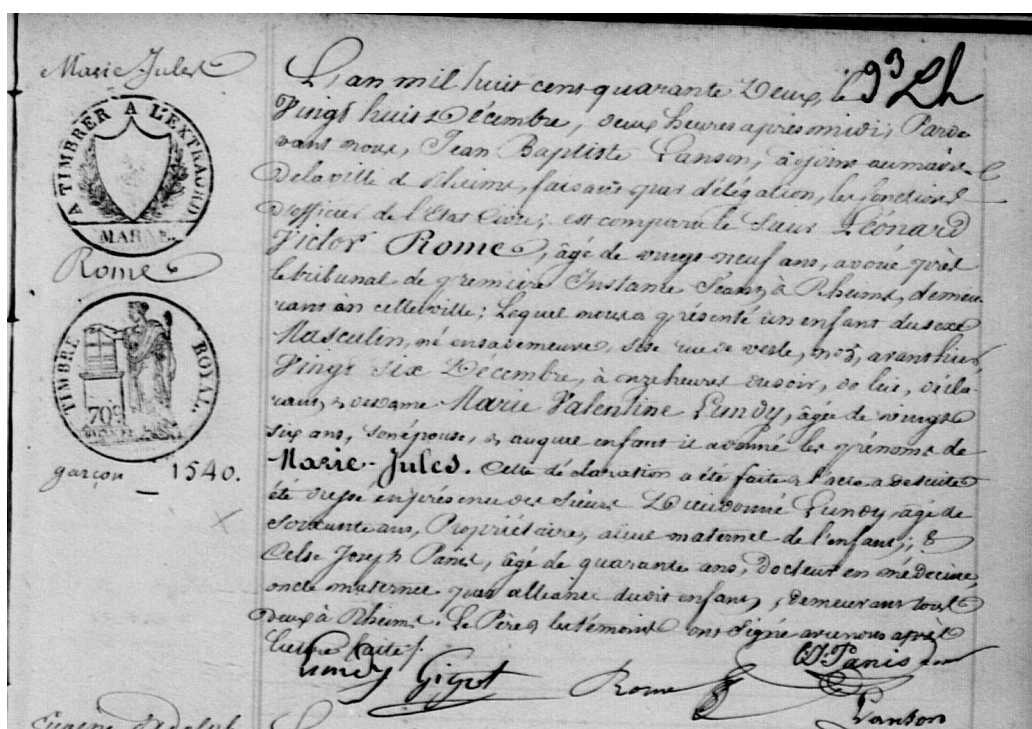 Marie Jules
A TIMBRER A L'EXTRAORD
MARNE.
Rome
TIMBRE ROYAL.
709
garçon _ 1540.
L'an mil huit cent quarante Deux, le
Vingt huit Décembre, deux heures après midi, Parde
vant nous, Jean Baptiste Lanson, adjoint au maire
Delaville de Rheims, faisant par délégation, les fonctions
D'officier de l'Etat Civil; est comparu le Sieur Léonard
Victor Rome, âgé de vingt neuf ans, avoué près
le tribunal de première Instance Séant à Rheims, demeu
rant en cette ville; Lequel nous a présenté un enfant du sexe
Masculin, né en sa demeure, sise rue de vesle, avant hier
Vingt six Décembre, à onze heures du soir, de lui, décla
rant, & de dame Marie Valentine Lundy, âgée de vingt
six ans, son épouse, & auquel enfant il a donné les prénoms de
Marie-Jules. Cette déclaration a été faite & l'acte a desuite
été dressé en présence des Sieurs Dieudonné Lundy, âgé de
soixante ans, Propriétaire, aïeul maternel de l'enfant; &
Celse Joseph Panis, âgé de quarante ans, Docteur en médecine,
oncle maternel par alliance dudit enfant, demeurant tous
deux à Rheims. Le Père & les témoins ont signé avec nous après
lecture faite.
Lundy Gigot Rome Panis
Lanson
Eugène Adolph